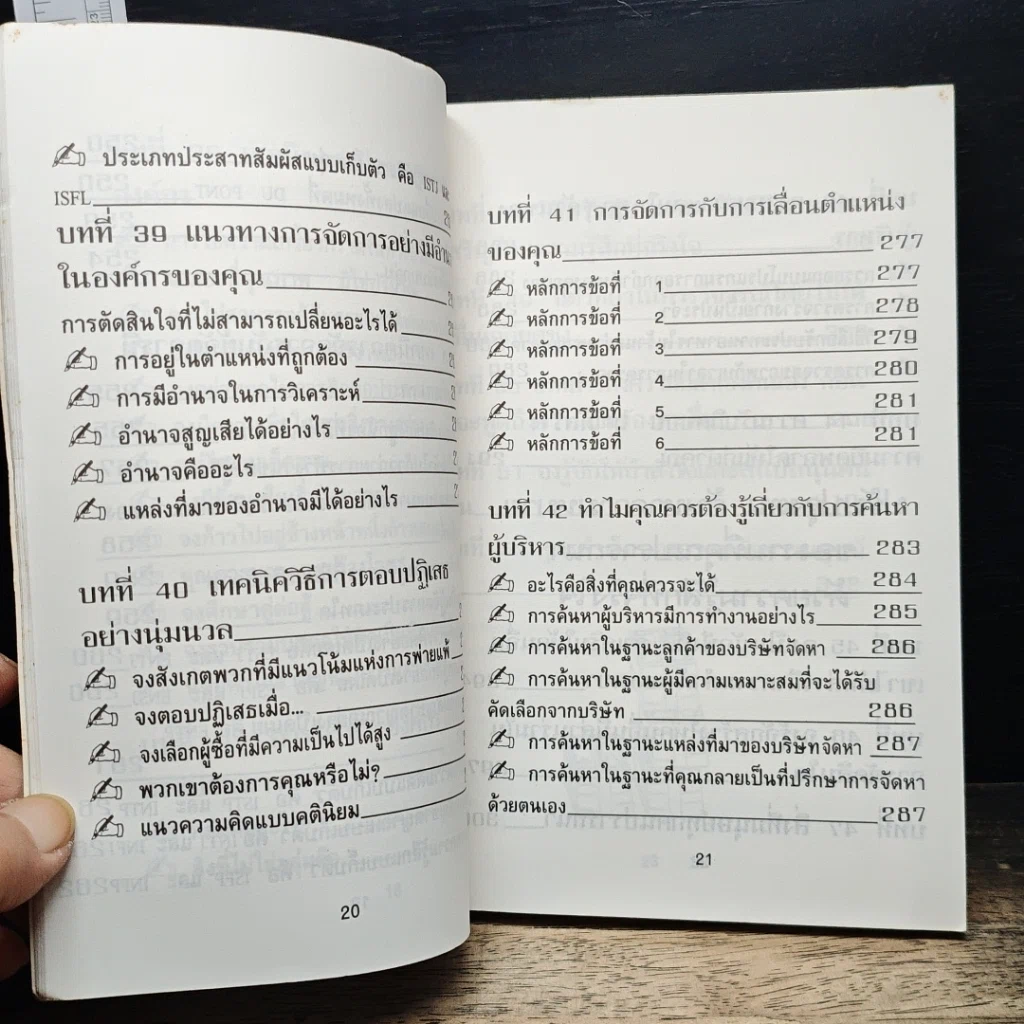 ประเภทประสาทสัมผัสแบบเก็บตัว คือ ISTJ และ
ISFL
บทที่ 39 แนวทางการจัดการอย่างมีอำนา
ในองค์กรของคุณ
การตัดสินใจที่ไม่สามารถเปลี่ยนอะไรได้
การอยู่ในตำแหน่งที่ถูกต้อง
การมีอำนาจในการวิเคราะห์
อำนาจสูญเสียได้อย่างไร
อำนาจคืออะไร
แหล่งที่มาของอำนาจมีได้อย่างไร
บทที่ 40 เทคนิควิธีการตอบปฏิเสธ
อย่างนุ่มนวล
จงสังเกตพวกที่มีแนวโน้มแห่งการพ่ายแพ้
จงตอบปฏิเสธเมื่อ...
จงเลือกผู้ซื้อที่มีความเป็นไปได้สูง
พวกเขาต้องการคุณหรือไม่?
แนวความคิดแบบคตินิยม
20
บทที่ 41 การจัดการกับการเลื่อนตำแหน่ง
ของคุณ 277
หลักการข้อที่ 1 277
หลักการข้อที่ 2 278
หลักการข้อที่ 3 279
หลักการข้อที่ 4 280
หลักการข้อที่ 5 281
หลักการข้อที่ 6 281
บทที่ 42 ทำไมคุณควรต้องรู้เกี่ยวกับการค้นหา
ผู้บริหาร 283
อะไรคือสิ่งที่คุณควรจะได้ 284
การค้นหาผู้บริหารมีการทำงานอย่างไร 285
การค้นหาในฐานะลูกค้าของบริษัทจัดหา 286
การค้นหาในฐานะผู้มีความเหมาะสมที่จะได้รับ
คัดเลือกจากบริษัท 286
การค้นหาในฐานะแหล่งที่มาของบริษัทจัดหา 287
การค้นหาในฐานะที่คุณกลายเป็นที่ปรึกษาการจัดหา
ด้วยตนเอง 287
21